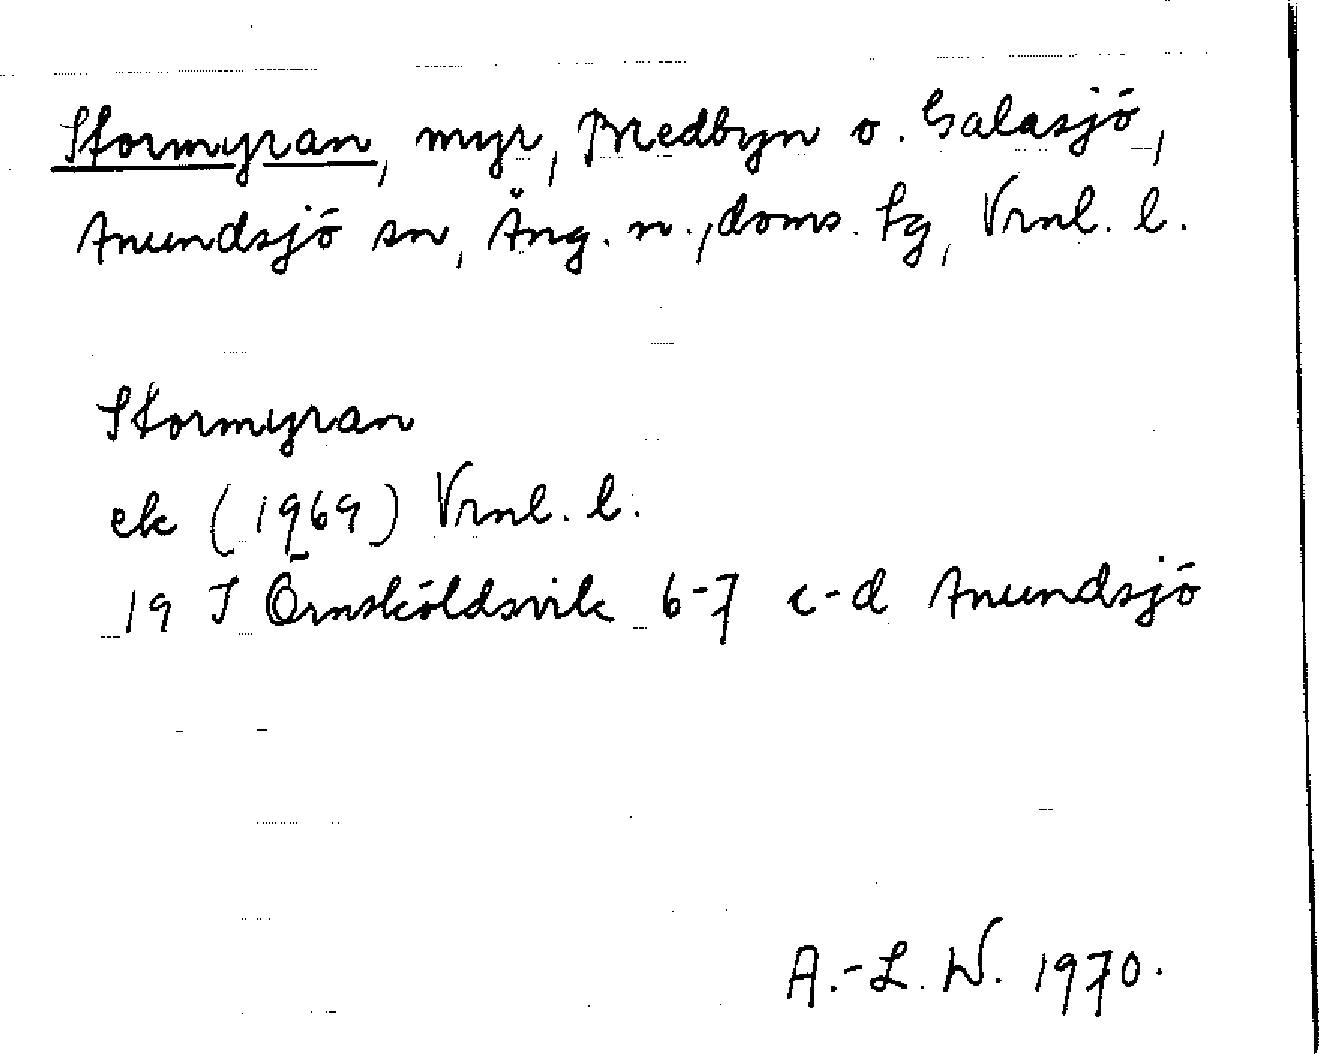 Stormyran, myr, Bredbyn o. Galasjö,
Anundsjö sn, Ång. n., doms. tg, Vrnl. l.
Stormyran
ek (1969) Vrnl. l.
19 J Örnsköldsvik 6-7 c-d Anundsjö
A.-L. W. 1970.